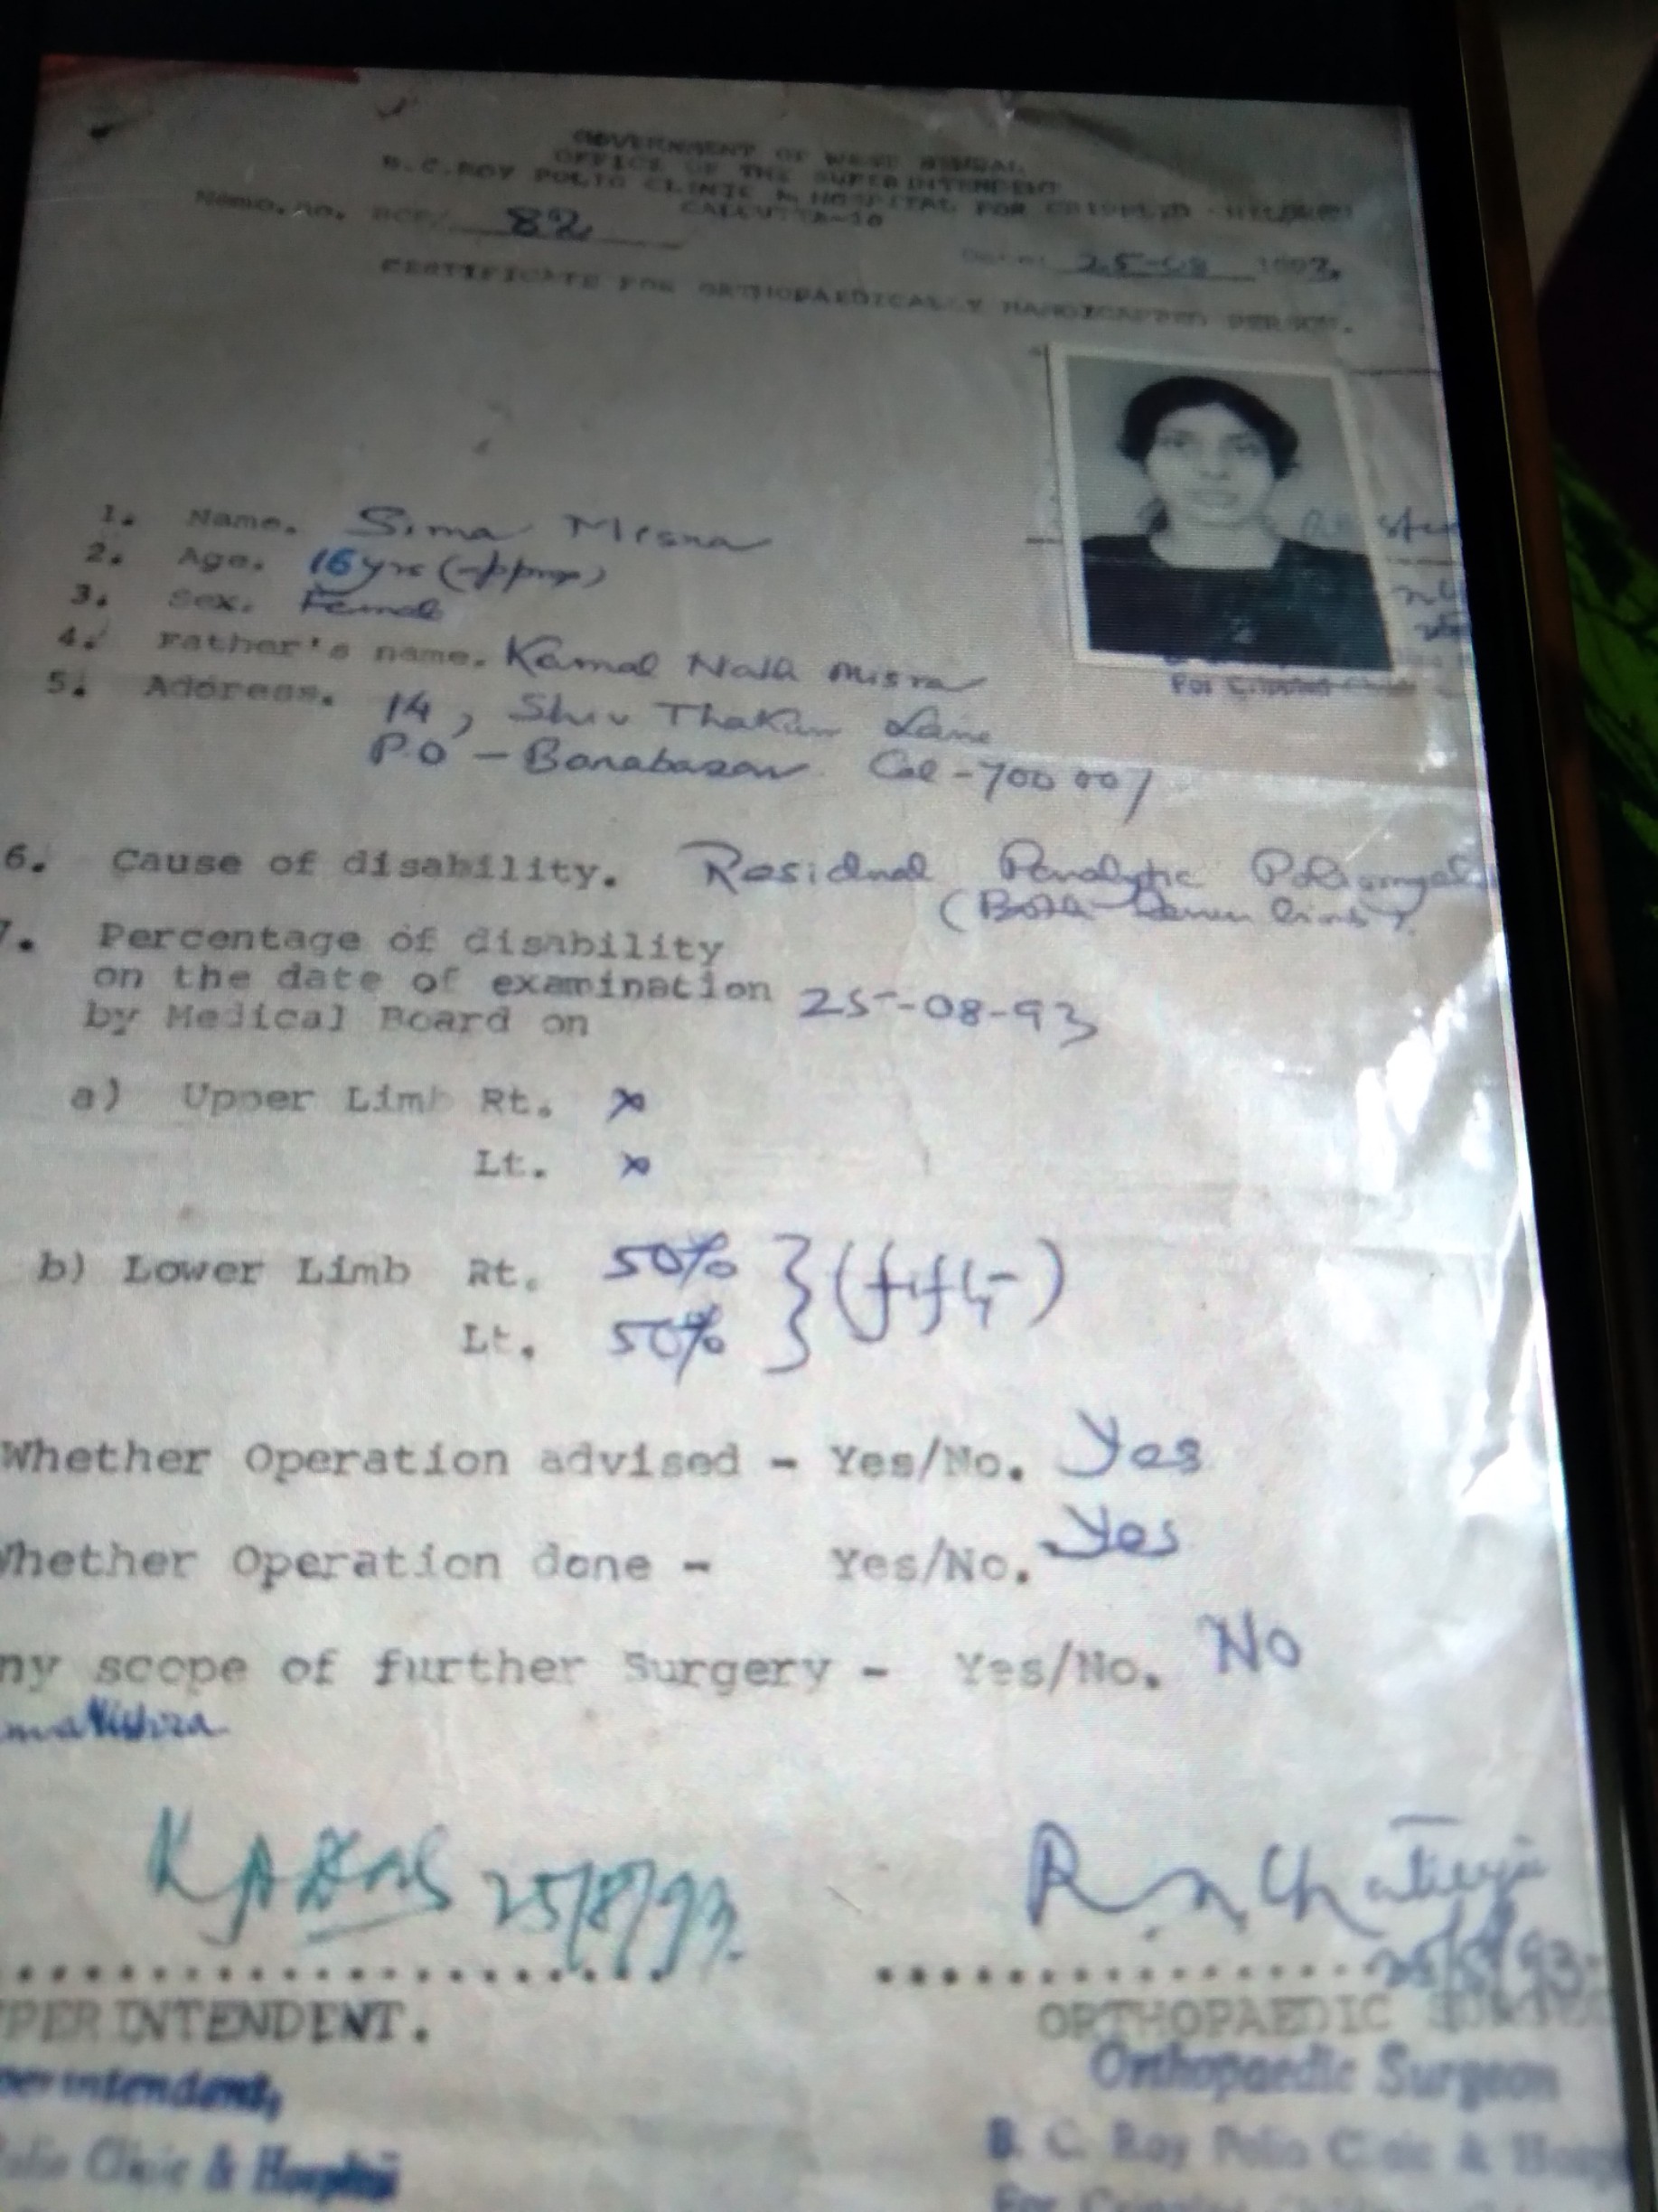 GOVERNMENT OF WEST BENGAL
OFFICE OF THE SUPERINTENDENT
B.C.ROY POLIO CLINIC & HOSPITAL FOR CRIPPLED CHILDREN
CALCUTTA-10
Memo.no. BCP/ 82
Date: 25-08 1993.
CERTIFICATE FOR ORTHOPAEDICALLY HANDICAPPED PERSON.
1. Name. Sima Misra
2. Age. 16 yrs (approx)
3. Sex. Female
4. Father's name. Kamal Nath Misra
5. Address. 14, Shiv Thakur Lane
P.O - Barabazar Cal-700 007
For Crippled
6. Cause of disability. Residual Paralytic
(Both Lower limbs).
7. Percentage of disability
on the date of examination 25-08-93
by Medical Board on
a) Upper Limb Rt. x
Lt. x
b) Lower Limb Rt. 50% } (fifty)
Lt. 50%
Whether Operation advised - Yes/No. Yes
Whether Operation done - Yes/No. Yes
ny scope of further Surgery - Yes/No. No
ma Mishra
25/8/93.
R. N. Chatterjee
25/8/93
PERINTENDENT.
ORTHOPAEDIC
perintendent,
Orthopaedic Surgeon
Polio Clinic & Hospital
B. C. Roy Polio Clinic & Hosp
For Crippled